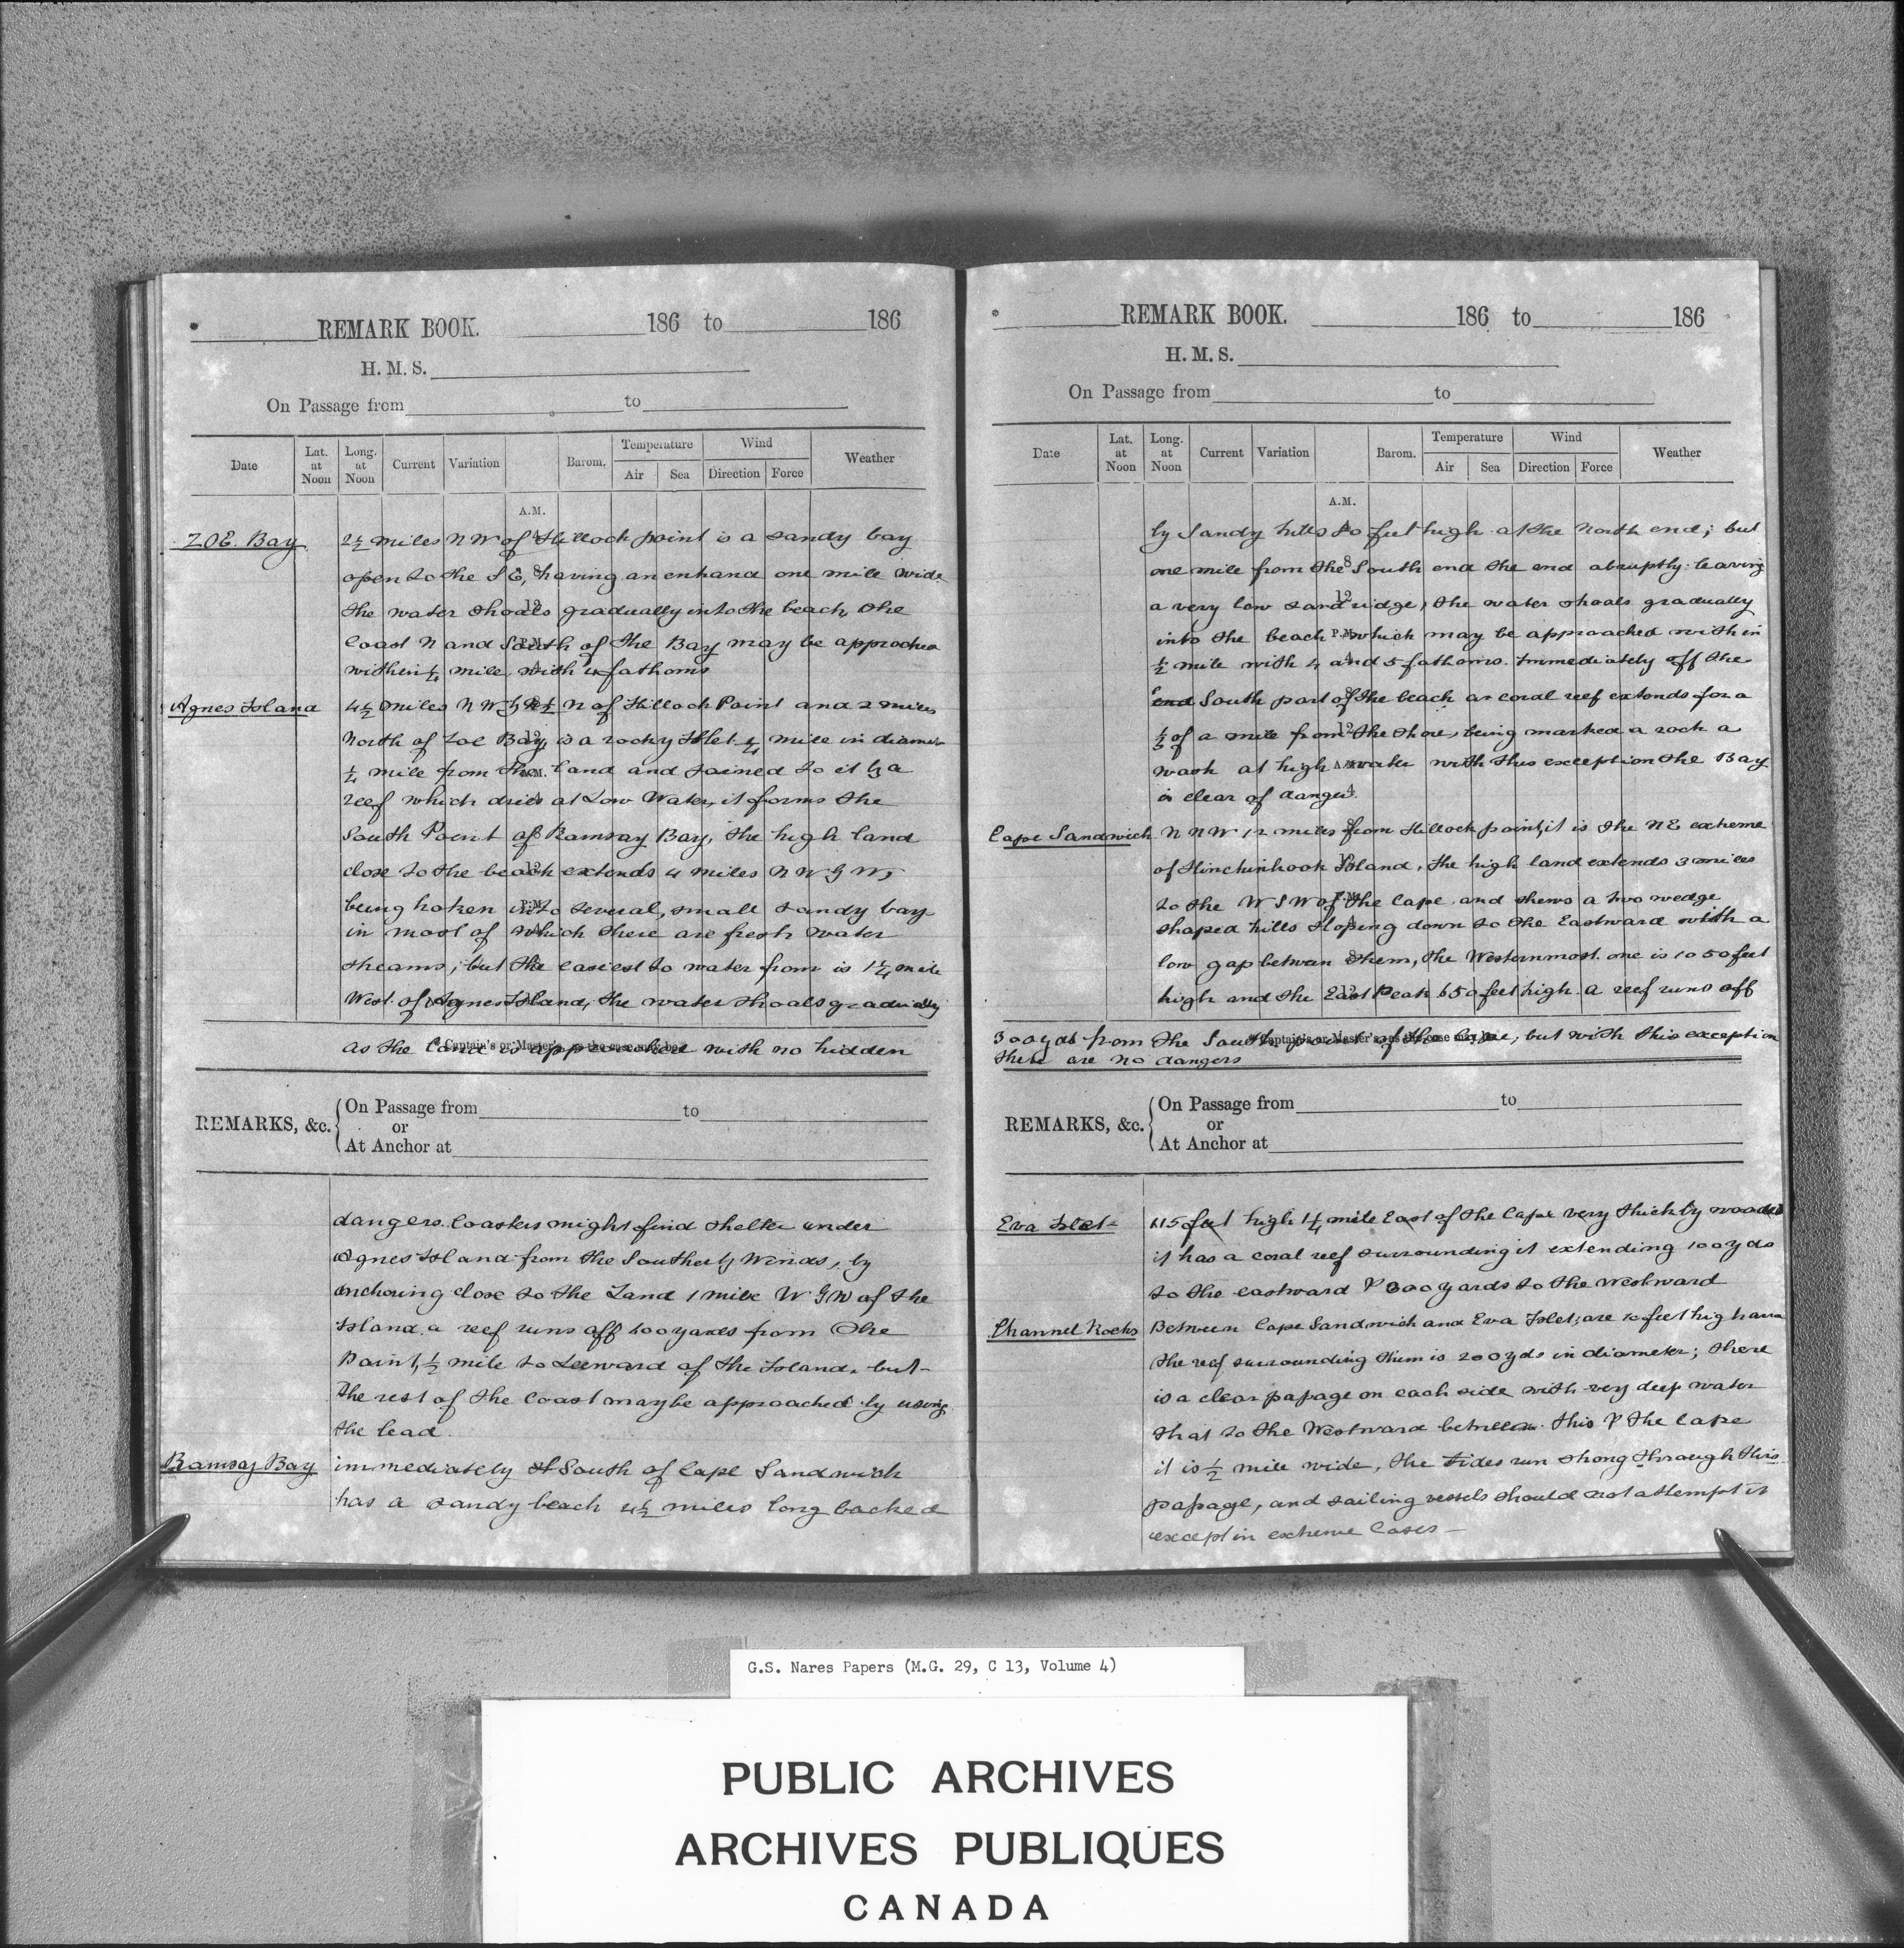 REMARK BOOK. 186 to 186
H. M. S.
On Passage from to
Date Lat. at Noon Long. at Noon Current Variation Barom. Temperature Air Sea Wind Direction Force Weather
A.M.
ZOE. Bay 2½ miles N W of Hillock point is a sandy bay
open to the S E, having an enhand one mile wide
the water shoals gradually into the beach, the
Coast N and South of the Bay may be approched
within ¼ mile, with 4 fathoms
Agnes Island 4½ miles N W by N ½ N of Hillock Point and 2 miles
North of Zoe Bay, is a rocky Islet ¼ mile in diamer
¼ mile from the land and joined to it by a
reef which dries at Low Water, it forms the
South Point of Ramsay Bay, the high land
close to the beach extends 4 miles N W by W,
being boken into several, small sandy bays
in most of which there are fresh water
streams; but the easiest to water from is 1¼ mile
West. of Agnes Island, the water shoals gradually
* Captain's or Master's, as the case may be.
as the land is approached with no hidden
REMARKS, &c. On Passage from to
or
At Anchor at
dangers. Coasters might find shelter under
Agnes Island from the Southerly Winds, by
anchoring close to the Land 1 mile W by W of the
Island. a reef runs off 400 yards from the
Point, ½ mile to Leeward of the Island. but
the rest of the Coast may be approached by using
the lead.
Ramsay Bay immediately South of Cape Sandwich
has a sandy beach 4½ miles long backed
REMARK BOOK. 186 to 186
H. M. S.
On Passage from to
Date Lat. at Noon Long. at Noon Current Variation Barom. Temperature Air Sea Wind Direction Force Weather
A.M.
by Sandy hills feet high at the North end; but
one mile from the South end the end abruptly. leaving
a very low sand ridge, the water shoals gradually
into the beach which may be approached within
½ mile with 4 and 5 fathoms. Immediately off the
end South part of the beach a coral reef extends for a
⅓ of a mile from the shore, being marked a rock a
wash at high water with this exception the Bay
is clear of danger.
Cape Sandwich N N W 12 miles from Hillock point, it is the N E extreme
of Hinchinbook Island, the high land extends 3 miles
to the W S W of the Cape. and shews a two wedge
shaped hills sloping down to the Eastward with a
low gap between them, the Westernmost. one is 1050 feet
high and the East Peak 650 feet high. a reef runs off
* Captain's or Master's, as the case may be.
300 yds from the South point of the Cape, but with this exception
there are no dangers
REMARKS, &c. On Passage from to
or
At Anchor at
Eva Islet 115 feet high 1¼ mile East of the Cape very thickly wooded
it has a coral reef surrounding it extending 100 yds
to the eastward & 300 yards to the Westward
Channel Rocks Between Cape Sandwich and Eva Islet; are 10 feet high and
the reef surrounding them is 200 yds in diameter; there
is a clear passage on each side with very deep water
that to the Westward between this & the Cape
it is ½ mile wide, the tides run strong through this
passage, and sailing vessels should not attempt it
except in extreme Cases —
G.S. Nares Papers (M.G. 29, C 13, Volume 4)
PUBLIC ARCHIVES
ARCHIVES PUBLIQUES
CANADA